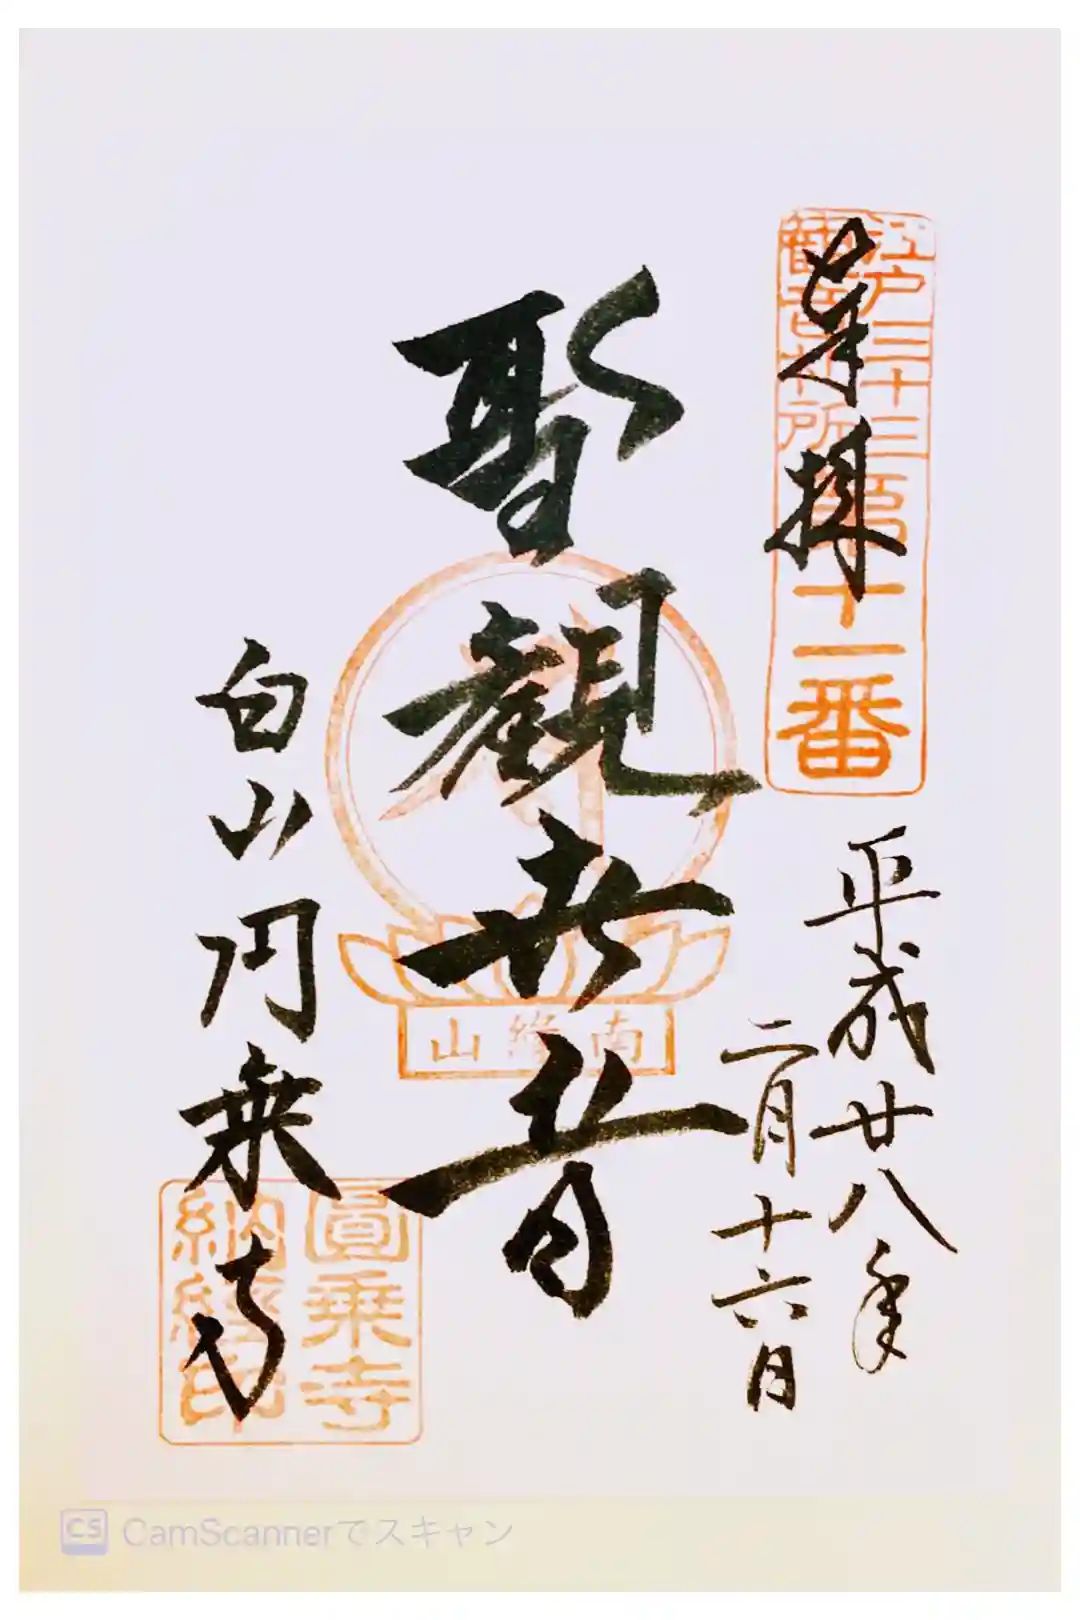 奉拝
江戸三十三
観音札所
第十一番
平成廿八年
二月十六日
聖観世音
南縁山
白山円乗寺
圓乗寺
納経印
CS CamScannerでスキャン